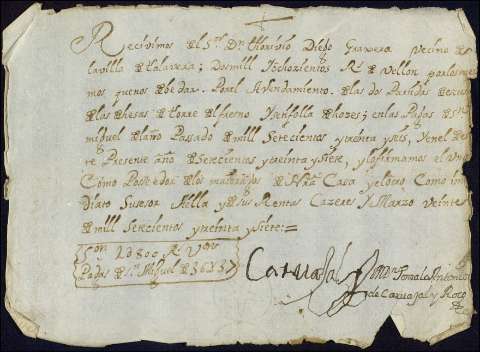 Recivimos del Sr. Dn. Thorivio Diego Gravera Vecino de
la villa de talavera; Dosmill Ychozientos Rs. de Vellon por los mes
mos que nos ha de dar. Por el Arrendamiento de las dos Partidas de
de las Dhesas de torre el fresno Ysenfolla de hozes; en las Pagas de Sn.
miguel del año Pasado de mill Setecientos ytreinta yseis, Yenel de es
te Presente año de Setecientos ytreinta ysiete, y lo firmamos el Uno
Como Poseedor de los maiorazgos de Nra. Casa y el otro Como in
Diato Susesor de ella y de sus Rentas Cazeres Y Marzo Veinte
de mill Setecientos ytreinta ysiete:=
Son 2800 Rs. Von
Pagas de Sn. Miguel de
Carvajal
Dn. Gonzalo Antonio
de Carvajal y Roco